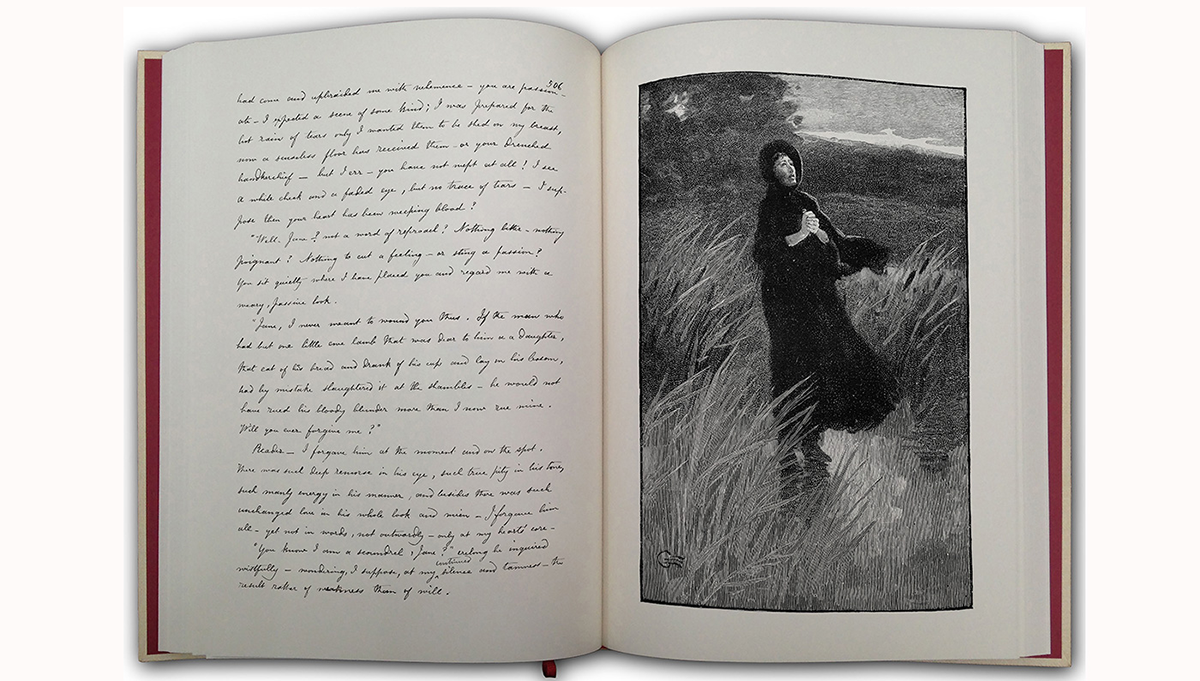 306
had come and upbraided me with vehemence - you are passion-
ate - I expected a scene of some kind; I was prepared for the
hot rain of tears only I wanted them to be shed on my breast,
now a senseless floor has received them - or your drenched
handkerchief - but I err - you have not wept at all! I see
a white cheek and a faded eye, but no trace of tears - I sup-
pose then your heart has been weeping blood?
"Well. Jane? not a word of reproach? Nothing bitter - nothing
poignant? Nothing to cut a feeling - or sting a passion?
You sit quietly where I have placed you and regard me with a
weary, passive look.
"Jane, I never meant to wound you thus. If the man who
had but one little ewe lamb that was dear to him as a daughter,
that eat of his bread and drank of his cup and lay in his bosom,
had by mistake slaughtered it at the shambles - he would not
have rued his bloody blunder more than I now rue mine.
Will you ever forgive me?"
Reader - I forgave him at the moment and on the spot.
There was such deep remorse in his eye, such true pity in his tone,
such manly energy in his manner, and besides there was such
unchanged love in his whole look and mien - I forgave him
all - yet not in words, not outwardly - only at my heart's core -
"You know I am a scoundrel, Jane?" erelong he inquired
wistfully - wondering, I suppose, at my continued silence and tameness - the
result rather of weakness than of will.